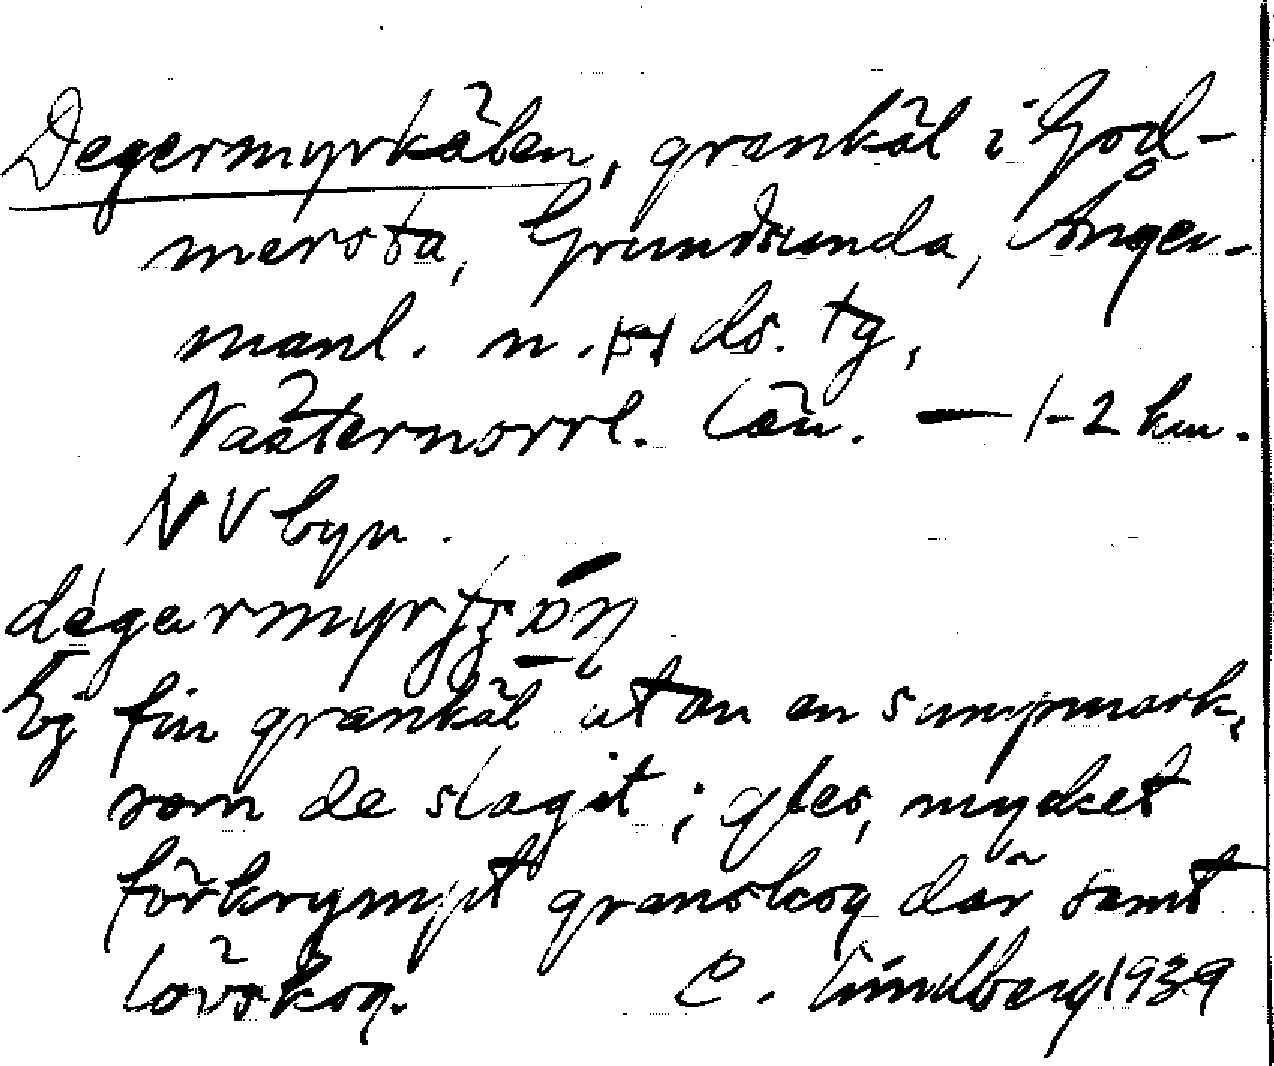 Degermyrkälen, grankäl i God-
mersta, Grundsunda, Ånger-
manl. n. ds. tg,
Västernorrl. län. — 1-2 km.
NV byn.
Ej fin grankäl utan en sumpmark,
som de slagit; gles, mycket
förkrympt granskog där samt
lövskog. C. Lindberg 1939